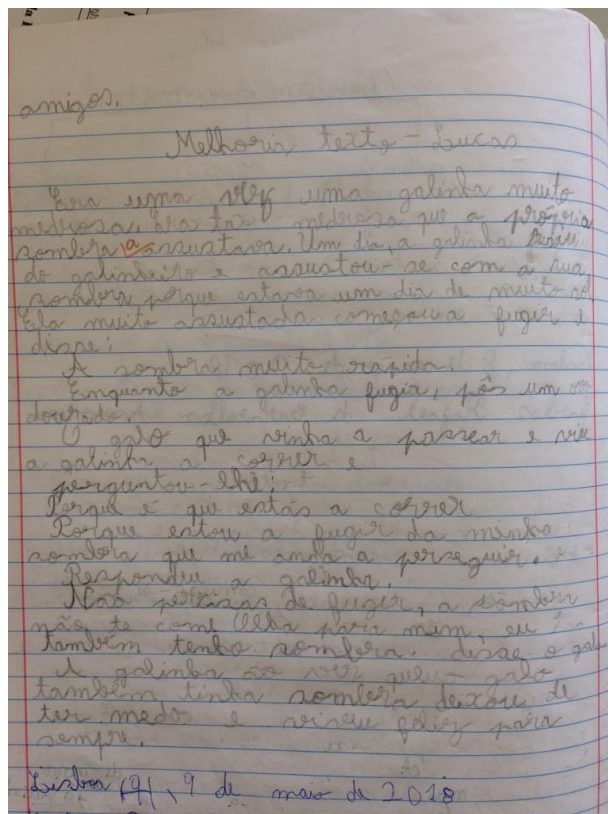 amigos.
Melhoria texto - Lucas
Era uma vez uma galinha muito
medrosa. Era tão medrosa que a própria
sombra a assustava. Um dia, a galinha saiu
do galinheiro e assustou-se com a sua
sombra porque estava um dia de muito sol
Ela muito assustada começou a fugir e
disse:
A sombra muito rapida
Enquanto a galinha fugia, pôs um ovo
dourado
O galo que vinha a passear e viu
a galinha a correr e
perguntou-lhe:
Porque é que estás a correr
Porque estou a fugir da minha
sombra que me anda a perseguir.
Respondeu a galinha.
Não precisas de fugir, a sombra
não te come Olha para mim, eu
também tenho sombra. disse o galo
A galinha ao ver que o galo
também tinha sombra deixou de
ter medo e viveu feliz para
sempre.
Lisboa, 9 de maio de 2018